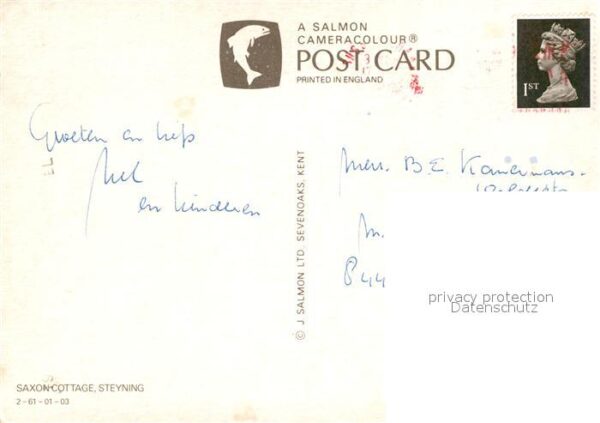 A SALMON
CAMERACOLOUR®
POST CARD
PRINTED IN ENGLAND
1ST
Groeten en liefs
en kinderen
© J. SALMON LTD. SEVENOAKS, KENT
Mevr. B.E.
M.
privacy protection
Datenschutz
SAXON COTTAGE, STEYNING
2-61-01-03